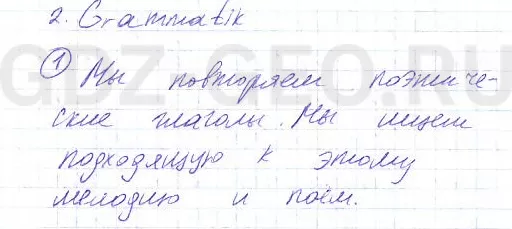 2. Grammatik
① Мы повторяем поэтиче-
ские глаголы. Мы ищем
подходящую к этому
мелодию и поём.
GDZ-GEO.RU